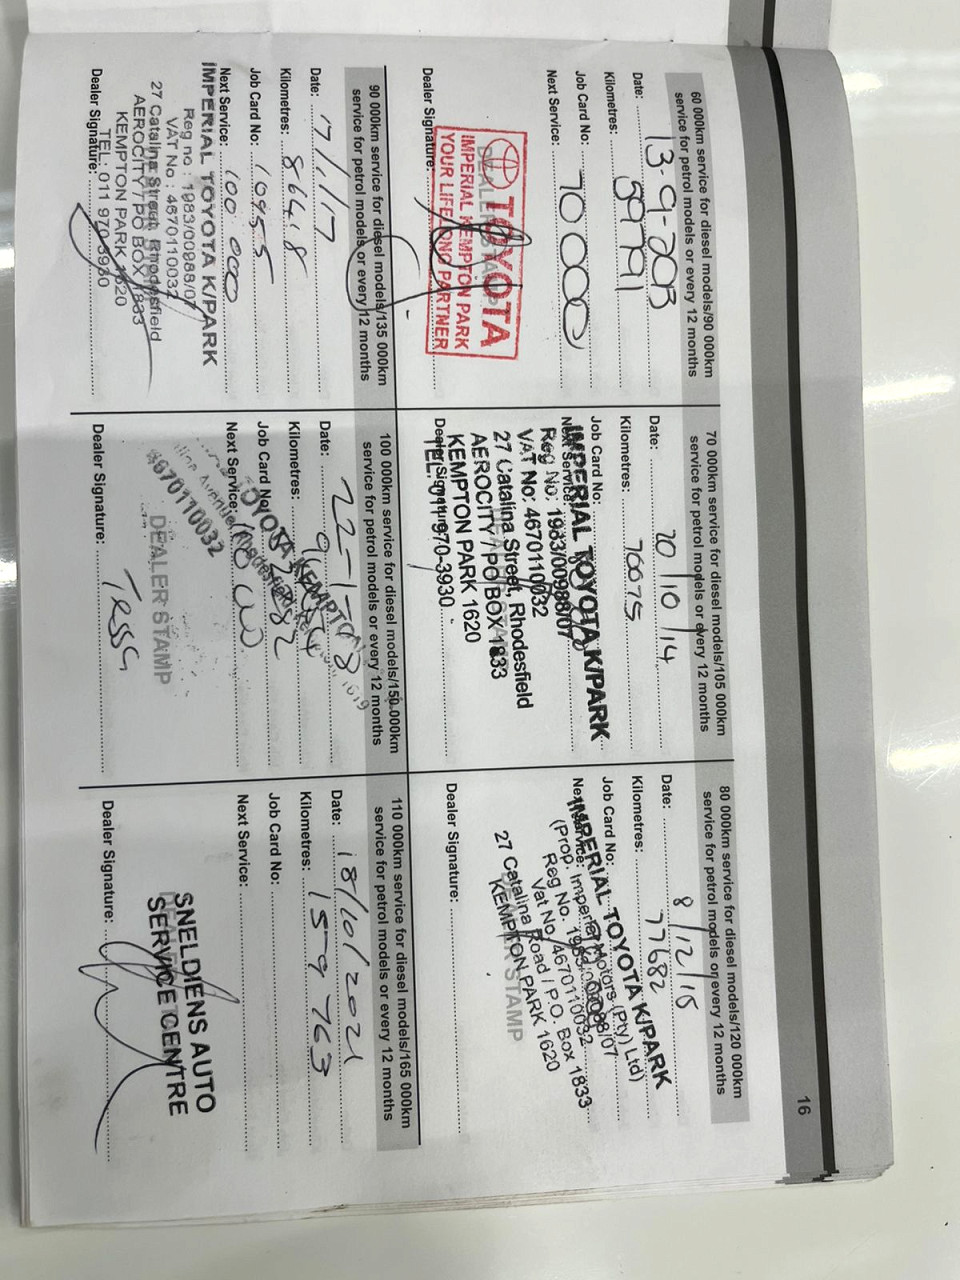 16
60 000km service for diesel models/90 000km
service for petrol models or every 12 months
Date: 13-9-2013
Kilometres: 59791
Job Card No:
Next Service: 70 000
TOYOTA
DEALER STAMP
IMPERIAL KEMPTON PARK
YOUR LIFE LONG PARTNER
Dealer Signature:
70 000km service for diesel models/105 000km
service for petrol models or every 12 months
Date: 20/10/14
Kilometres: 70075
Job Card No:
Next Service:
IMPERIAL TOYOTA K/PARK
Reg No: 1983/00988/07
VAT No: 4670110032
27 Catalina Street, Rhodesfield
AEROCITY / PO BOX 1833
KEMPTON PARK 1620
TEL: 011 970-3930
Dealer Signature:
80 000km service for diesel models/120 000km
service for petrol models or every 12 months
Date: 8/12/15
Kilometres: 77682
Job Card No:
Next Service:
IMPERIAL TOYOTA K/PARK
(Prop. Imperial Motors (Pty) Ltd)
Reg No. 1983/00988/07
Vat No. 4670110032
27 Catalina Road / P.O. Box 1833
KEMPTON PARK 1620
DEALER STAMP
Dealer Signature:
90 000km service for diesel models/135 000km
service for petrol models or every 12 months
Date: 17/1/17
Kilometres: 86418
Job Card No: 10955
Next Service: 100 000
IMPERIAL TOYOTA K/PARK
Reg no : 1983/00988/07
VAT No : 4670110032
27 Catalina Street, Rhodesfield
AEROCITY / PO BOX 1833
KEMPTON PARK 1620
TEL: 011 970-3930
Dealer Signature:
100 000km service for diesel models/150 000km
service for petrol models or every 12 months
Date: 22-1-18
Kilometres:
Job Card No:
Next Service:
TOYOTA KEMPTON
4670110032
DEALER STAMP
Dealer Signature: Tessa
110 000km service for diesel models/165 000km
service for petrol models or every 12 months
Date: 18/10/2021
Kilometres: 159 763
Job Card No:
Next Service:
SNELDIENS AUTO
SERVICE CENTRE
Dealer Signature: